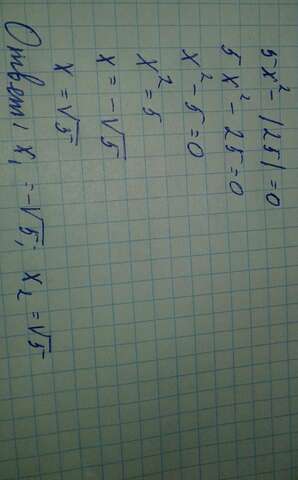 5x² - |25| = 0
5x² - 25 = 0
x² - 5 = 0
x² = 5
x = -√5
x = √5
Ответ: x₁ = -√5; x₂ = √5